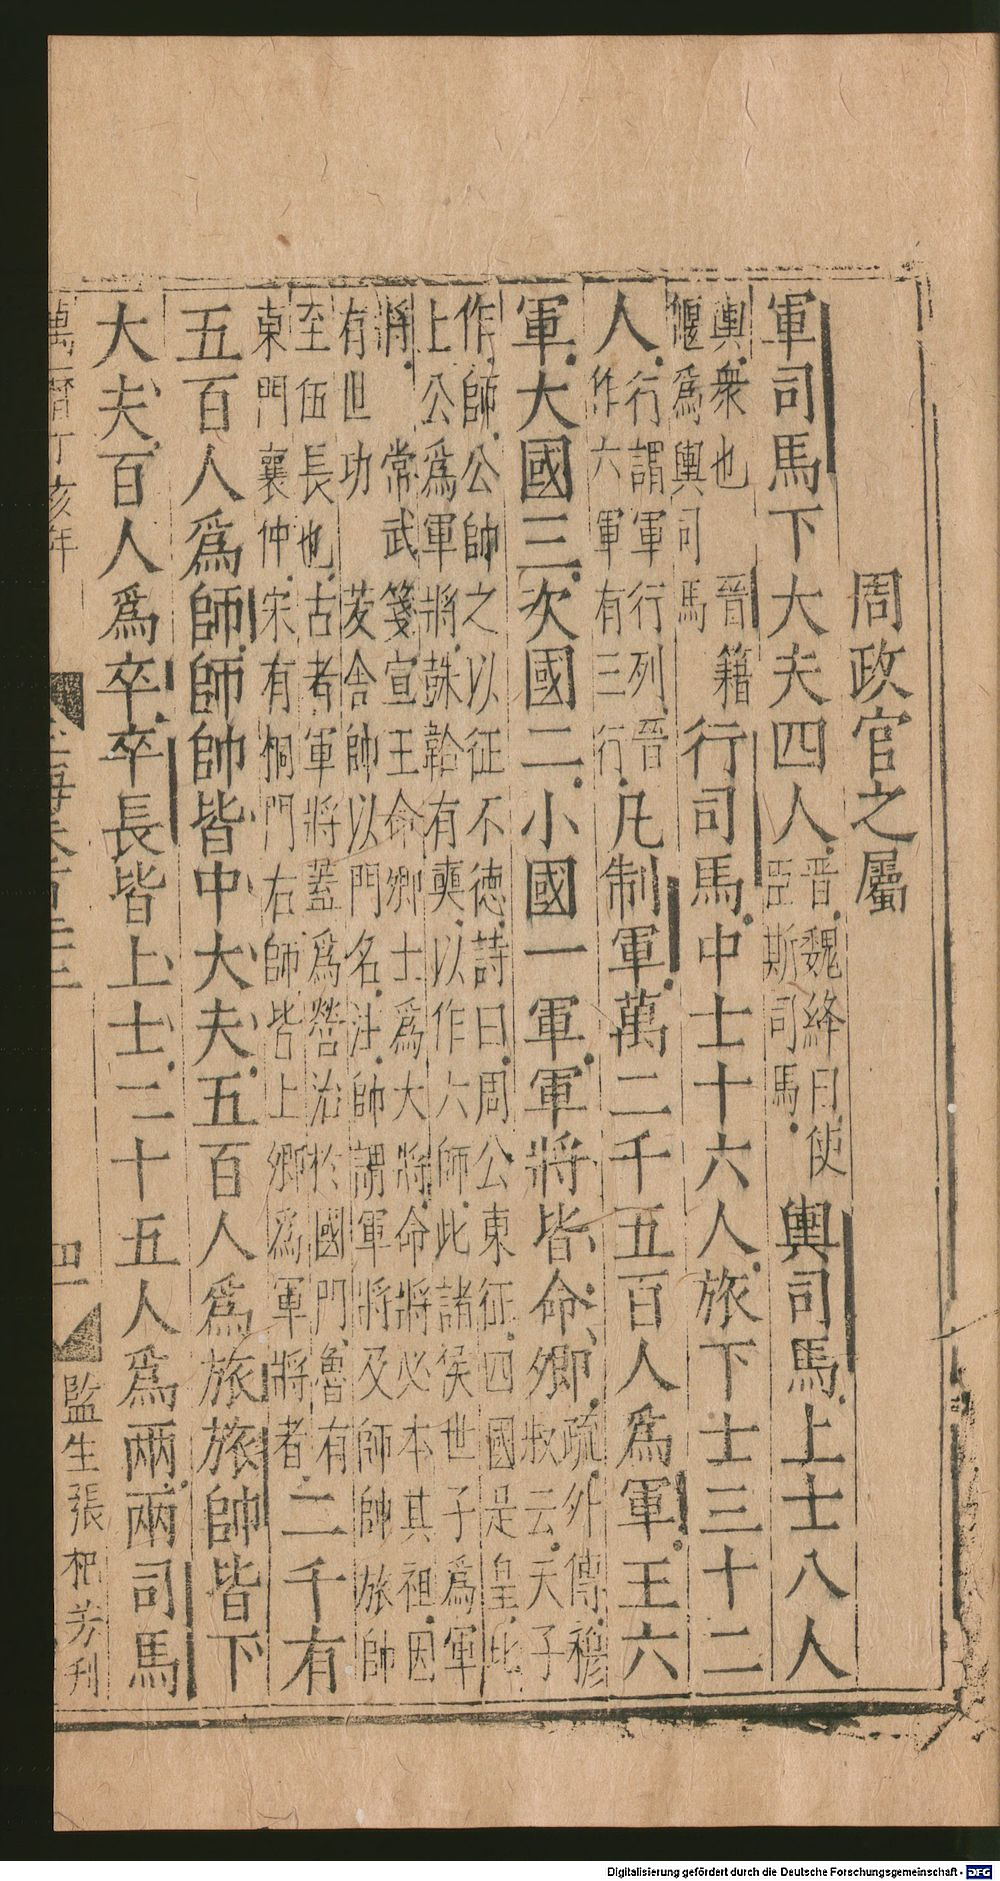 周政官之屬
軍司馬下大夫四人晉魏絳曰使臣斯司馬輿司馬上士八人
輿衆也晉籍偃爲輿司馬行司馬中士十六人旅下士三十二
人行謂軍行列晉作六軍有三行凡制軍萬二千五百人爲軍王六
軍大國三次國二小國一軍軍將皆命卿疏外傳穆叔云天子
作師公帥之以征不德詩曰周公東征四國是皇此
上公爲軍將韎韐有奭以作六師此諸侯世子爲軍
將常武箋宣王命卿士爲大將命將必本其祖因
有世功茇舍帥以門名注帥謂軍將及師帥旅帥
至伍長也古者軍將蓋爲營治於國門魯有
東門襄仲宋有桐門右師皆上卿爲軍將者二千有
五百人爲師師帥皆中大夫五百人爲旅旅帥皆下
大夫百人爲卒卒長皆上士二十五人爲兩兩司馬
萬曆丁亥年
玉海卷百三十二
四
監生張杞芳刊
Digitalisierung gefördert durch die Deutsche Forschungsgemeinschaft - DFG